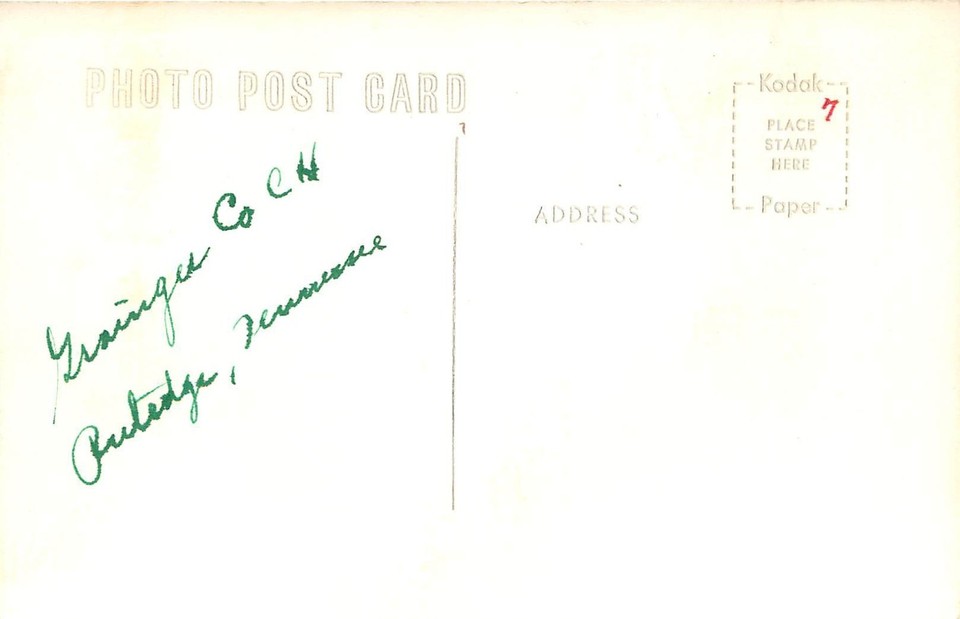 PHOTO POST CARD
Kodak
7
PLACE
STAMP
HERE
Paper
ADDRESS
Grainger Co C H
Rutledge, Tennessee